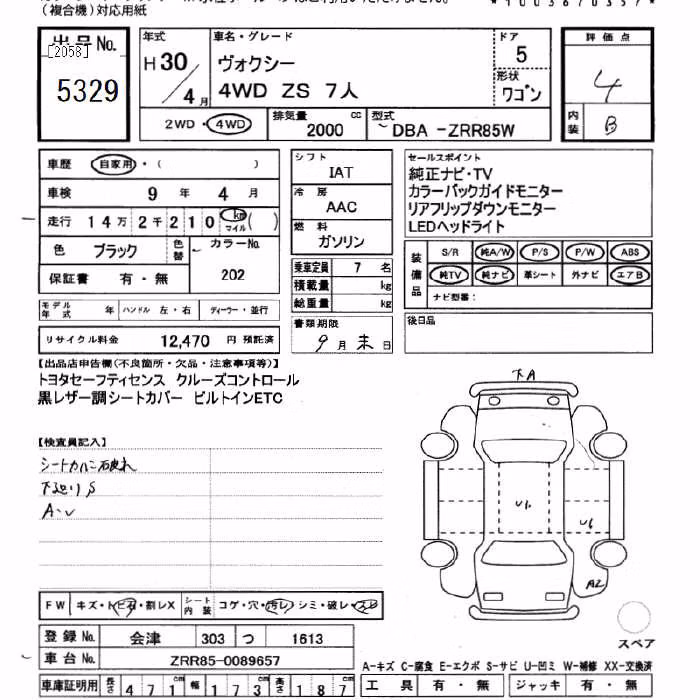 （複合機）対応用紙
出品No.
[2058]
5329
年式
H30／4月
車名・グレード
ヴォクシー
4WD ZS 7人
ドア
5
形状
ワゴン
評価点
4
内装
B
2WD・4WD
排気量
2000 cc
型式
DBA -ZRR85W
車歴 自家用・（ ）
車検 9 年 4 月
走行 14万2千210 km マイル（ ）
色 ブラック
色替
カラーNo.
202
保証書 有・無
モデル年式 年
ハンドル 左・右
ディーラー・並行
リサイクル料金 12,470 円 預託済
シフト
IAT
冷房
AAC
燃料
ガソリン
乗車定員 7 名
積載量 kg
総重量 kg
書類期限
9月末日
セールスポイント
純正ナビ・TV
カラーバックガイドモニター
リアフリップダウンモニター
LEDヘッドライト
装備品
S/R 純A/W P/S P/W ABS
純TV 純ナビ 革シート 外ナビ エアB
ナビ型番：
後日品
【出品店申告欄（不良箇所・欠品・注意事項等）】
トヨタセーフティセンス クルーズコントロール
黒レザー調シートカバー ビルトインETC
【検査員記入】
シートカバー破れ
下廻りS
A・U
下A
U1
U1
A2
スペア
FW キズ・トビ石・割レX
シート内装 コゲ・穴・汚レ・シミ・破レ・スレ
登録No. 会津 303 つ 1613
車台No. ZRR85-0089657
車庫証明用 長さ 471cm 幅 173cm 高さ 187cm
A-キズ C-腐食 E-エクボ S-サビ U-凹ミ W-補修 XX-交換済
工具 有・無 ジャッキ 有・無